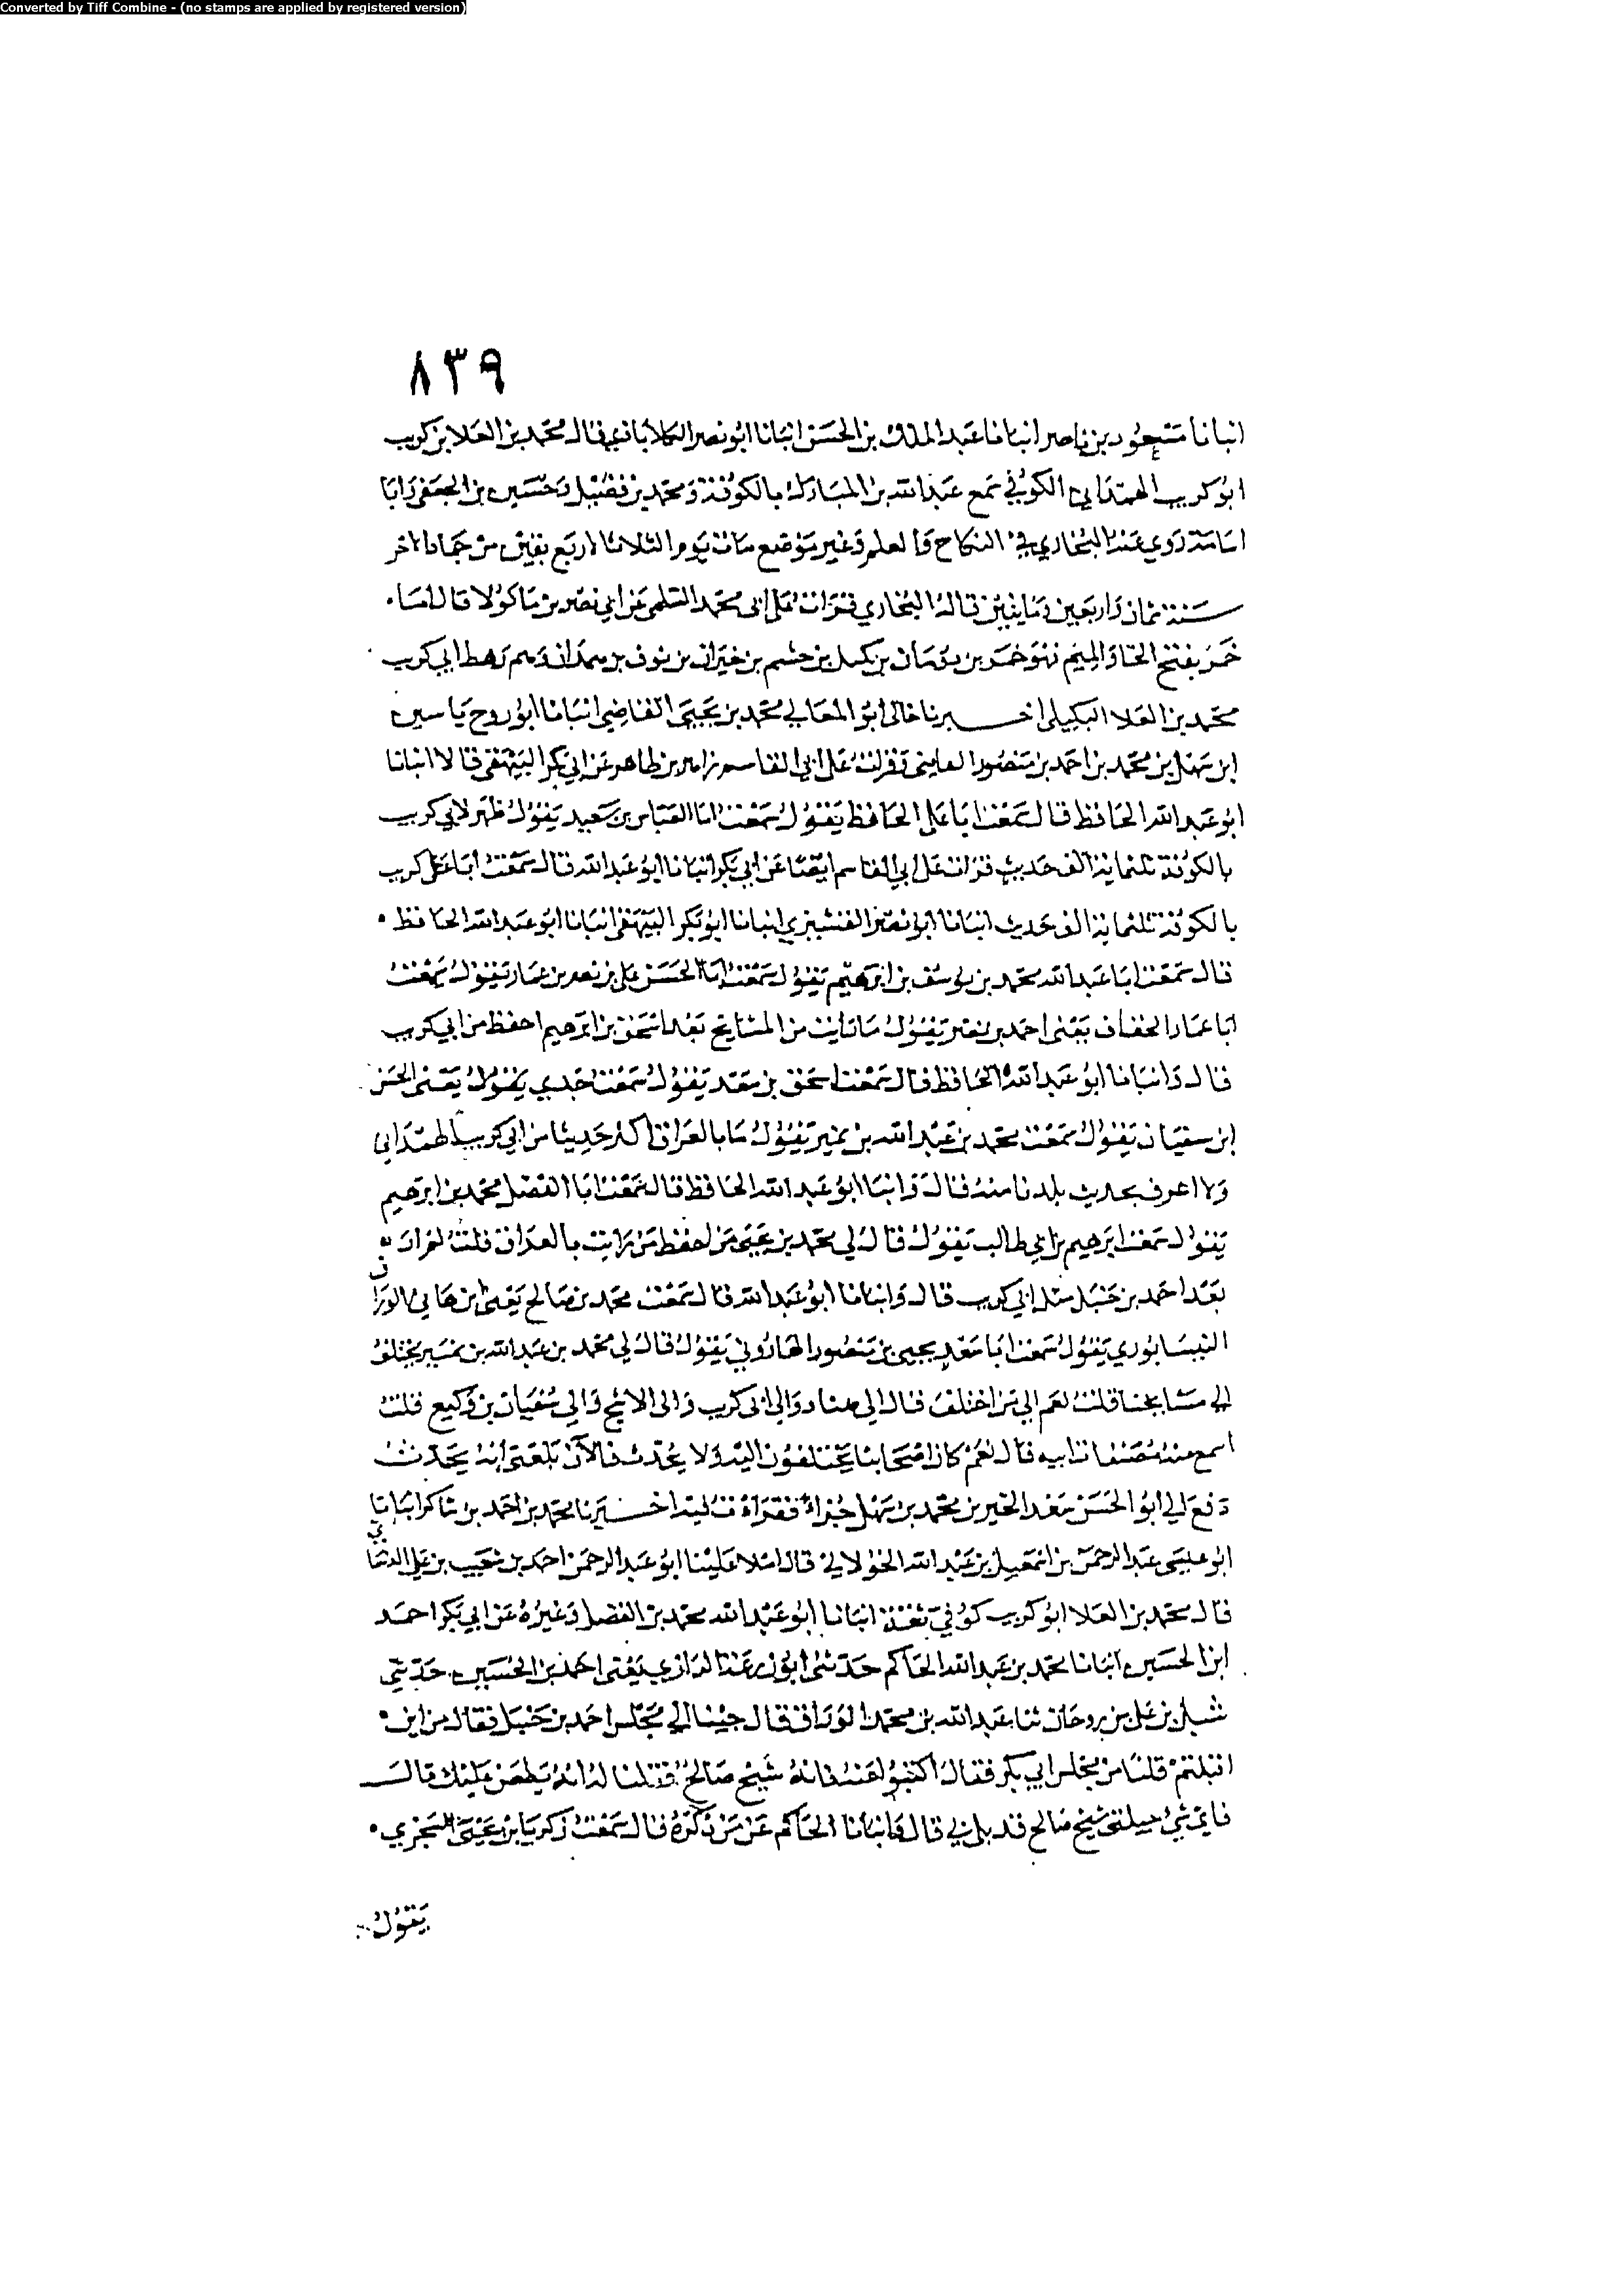 Converted by Tiff Combine - (no stamps are applied by registered version)
٨٣٩
انبانا مسعود بن ناصر انبانا عبد الملك بن الحسن انبانا ابو نصر الكلاباذي قال محمد بن العلا بن كريب
ابو كريب الهمداني الكوفي سمع عبد الله بن المبارك بالكوفة ومحمد بن فضيل وحسين بن الجعفي وابا
اسامة روي عنه البخاري في النكاح والعلم وغير موضع مات يوم الثلاثا لاربع بقين من جمادا لاخر
سنة ثمان واربعين ومايتين قاله البخاري قرات على ابي محمد السلمي عن ابي نصر بن ماكولا قال اما
خمر بفتح الخا والميم فهو خمر بن دومان بن بكيل بن جشم بن خيران بن نوف بن همدان وهم رهط ابي كريب
محمد بن العلا البكيلي اخبرنا خالي ابو المعالي محمد بن يحيى القاضي انبانا ابو روح ياسين
ابن سهل بن محمد بن احمد بن منصور وقرات على ابي القاسم زاهر بن طاهر عن ابي بكر البيهقي قالا انبانا
ابو عبد الله الحافظ قال سمعت ابا على الحافظ يقول سمعت ابا العباس بن سعيد يقول ظهر لابي كريب
بالكوفة ثلثماية الف حديث قرات على ابي القاسم ايضا عن ابي بكر انبانا ابو عبد الله قال سمعت ابا على كريب
بالكوفة ثلثماية الف حديث انبانا ابو نصر القشيري انبانا ابو بكر البيهقي انبانا ابو عبد الله الحافظ
قال سمعت ابا عبد الله محمد بن يوسف بن ابرهيم يقول سمعت ابا الحسن علي بن نصر بن عمار يقول سمعت
ابا عمار الخفاف يعنى احمد بن نصر يقول ما رايت من المشايخ بعد اسحق بن ابرهيم احفظ من ابي كريب
قال وانبانا ابو عبد الله الحافظ قال سمعت اسحق بن سعد يقول سمعت جدي يقول يعنى الحسن
ابن سفيان يقول سمعت محمد بن عبد الله بن نمير يقول ما بالعراق اكثر حديثا من ابي كريب الهمداني
ولا اعرف بحديث بلدنا منه قال وانبا ابو عبد الله الحافظ قال سمعت ابا الفضل محمد بن ابرهيم
يقول سمعت ابرهيم بن ابي طالب يقول قال لي محمد بن يحيى من احفظ من رايت بالعراق قلت لم ار
بعد احمد بن حنبل مثل ابي كريب قال وانبانا ابو عبد الله قال سمعت محمد بن صالح يعنى ابن هاني الوراق
النيسابوري يقول سمعت ابا سعد يحيى بن منصور الهاروني يقول قال لي محمد بن عبد الله بن نمير يختلف
الي مشايخنا قلت نعم الي من اختلف قال الي هناد والي ابي كريب والى الاشج والي سفيان بن وكيع قلت
اسمع منه مصنفات ابيه قال نعم كان اصحابنا يختلفون اليه ولا يحدث فالآن بلغني انه يحدث
دفع الي ابو الحسن سعد الخير بن محمد بن سهل جزاء فقرات فيه اخبرنا محمد بن احمد بن شاكر انبانا
ابو عيسى عبد الرحمن بن اسمعيل بن عبد الله الخولاني قال املا علينا ابو عبد الرحمن احمد بن شعيب بن علي النسائي
قال محمد بن العلا ابو كريب كوفي ثقة انبانا ابو عبد الله محمد بن الفضل وغيره عن ابي بكر احمد
ابن الحسين انبانا محمد بن عبد الله الحاكم حدثني ابو زرعة الرازي يعنى احمد بن الحسين حدثني
شبل بن على بن روحان ثنا عبد الله بن محمد الوراق قال جينا الي مجلس احمد بن حنبل فقال من اين
اقبلتم قلنا من مجلس ابي بكر فقال اكتبوا عنه فانه شيخ صالح فقلنا له انه يطعن عليك قال
فاي شي حيلتى شيخ صالح قد بلي بي قال وانبانا الحاكم عن من ذكره قال سمعت زكريا بن يحيى السجزي
يقول